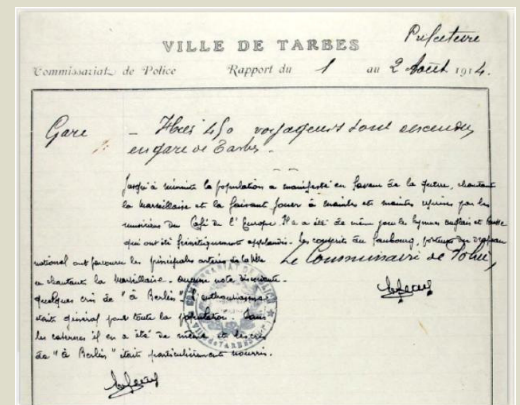 VILLE DE TARBES
Préfecture
Commissariat de Police Rapport du 1 au 2 Août 1914.
Gare - Hier 450 voyageurs sont descendus
en gare de Tarbes.
Jusqu'à minuit la population a manifesté en faveur de la guerre, chantant
la Marseillaise et la faisant jouer à maintes et maintes reprises par les
musiciens du Café de l'Europe. Il a été de même pour les hymnes anglais et russe
qui ont été frénétiquement applaudis. Les conscrits du faubourg, portant un drapeau
national ont parcouru les principales artères de la ville
en chantant la Marseillaise. Aucune note discordante.
quelques cris de "à Berlin" enthousiasme
était général pour toute la population. Dans
les casernes il en a été de même et les cris
de "à Berlin" étaient particulièrement nourris.
Le Commissaire de Police,
COMMISSARIAT DE POLICE
VILLE de TARBES